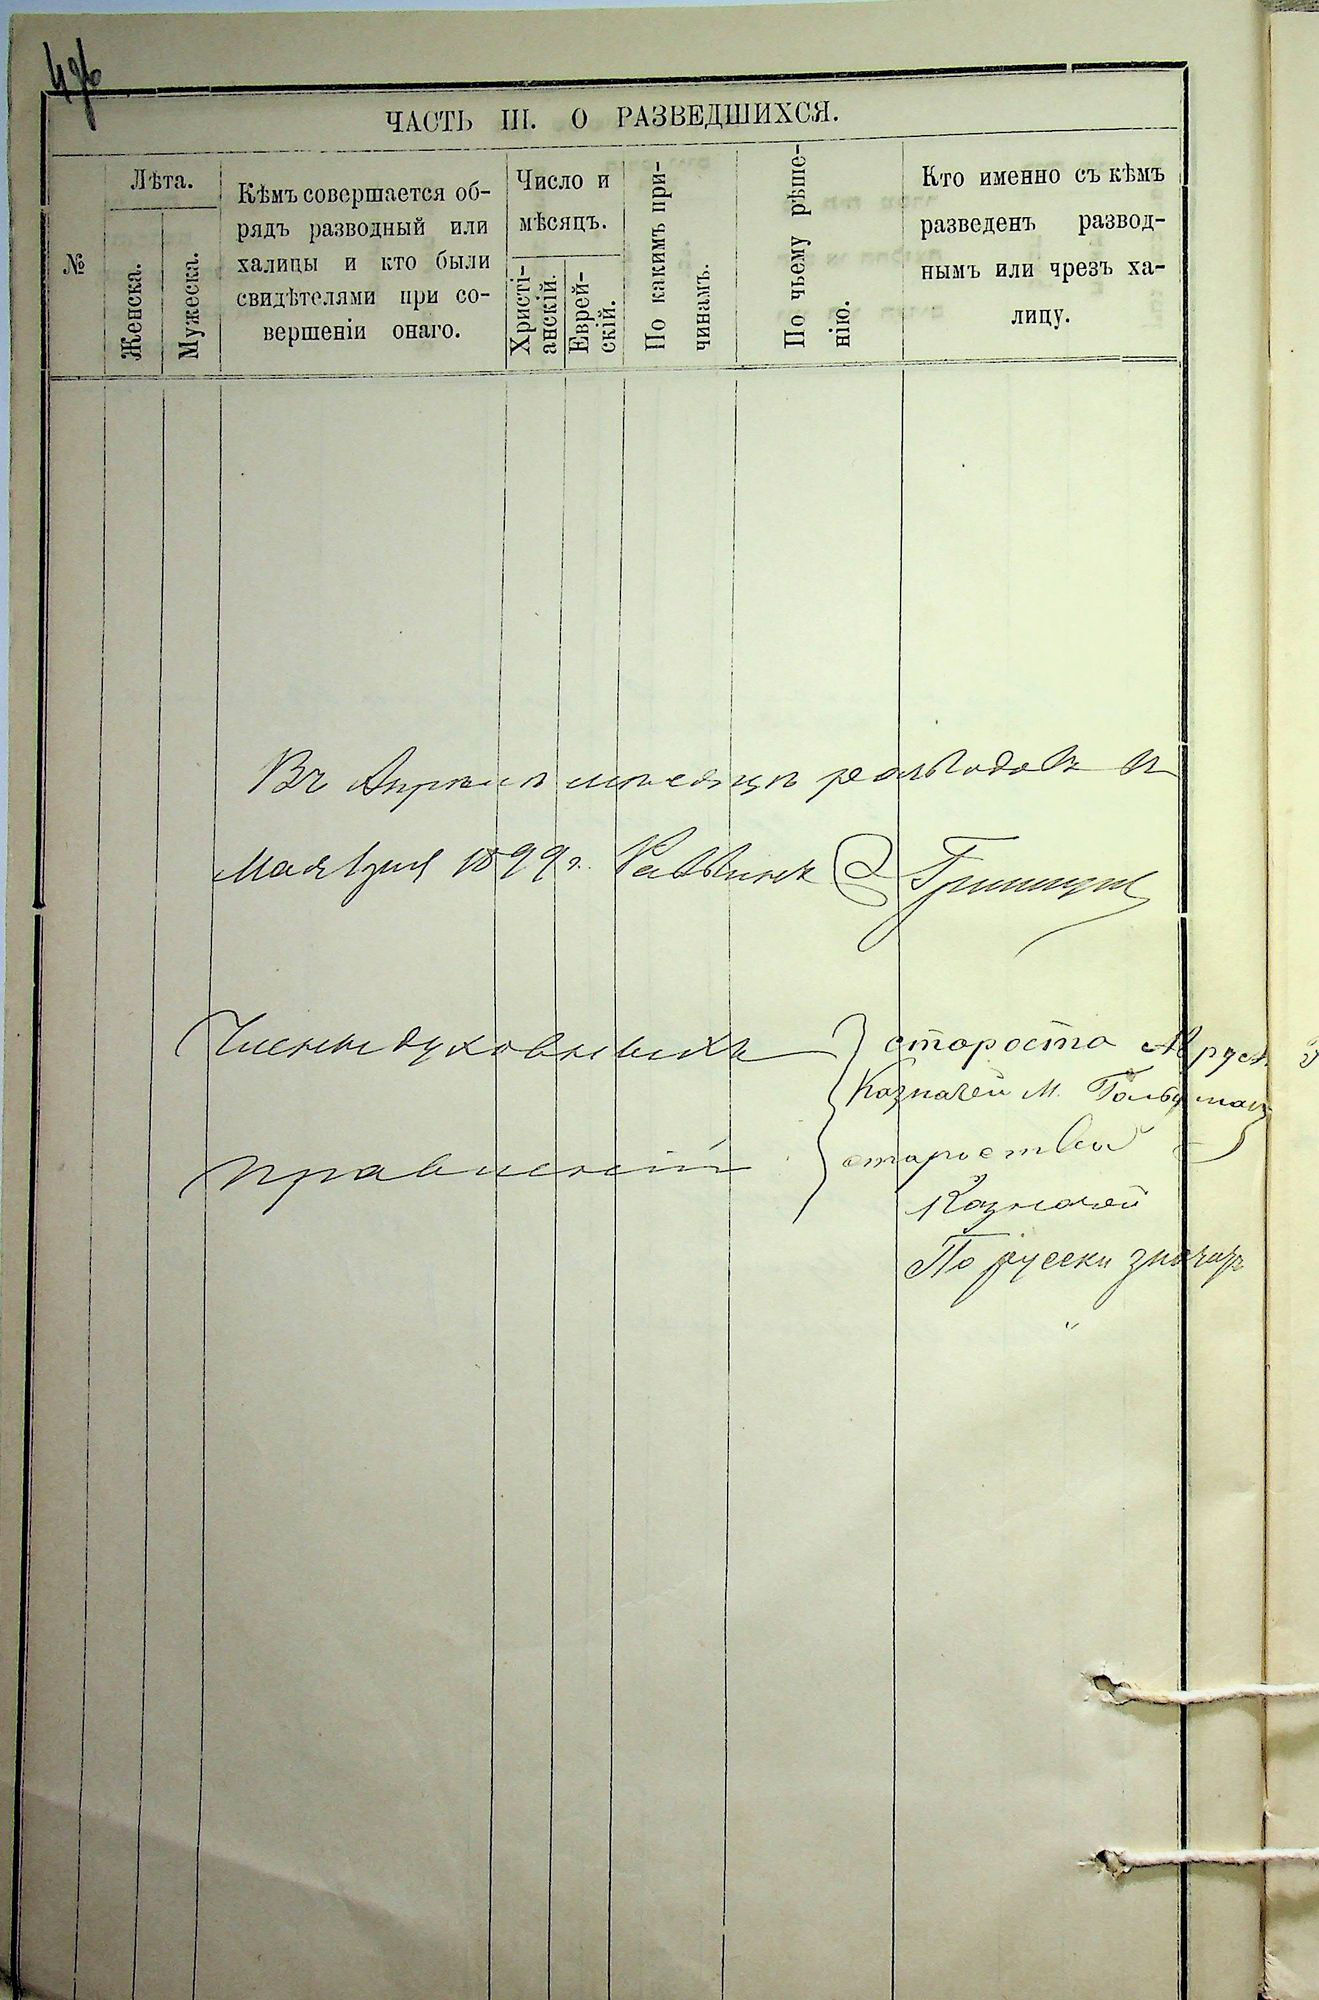 ЧАСТЬ III. О РАЗВЕДШИХСЯ.
№
Лѣта.
Женска.
Мужеска.
Кѣмъ совершается об-
рядъ разводный или
халицы и кто были
свидѣтелями при со-
вершеніи онаго.
Число и
мѣсяцъ.
Христі-
анскій.
Еврей-
скій.
По какимъ при-
чинамъ.
По чьему рѣше-
нію.
Кто именно съ кѣмъ
разведенъ развод-
нымъ или чрезъ ха-
лицу.
Въ Апрѣлѣ мѣсяцѣ разводовъ н
Мая 1 дня 1899 г. Раввинъ
Члены духовныхъ
правленій
староста
Казначей М.
староста
Казначей
По русски